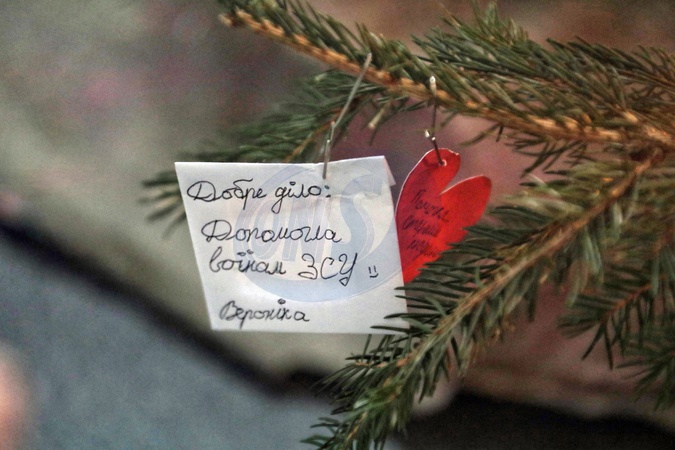 Добре діло:
Допомогла
воїнам ЗСУ !!
Вероніка